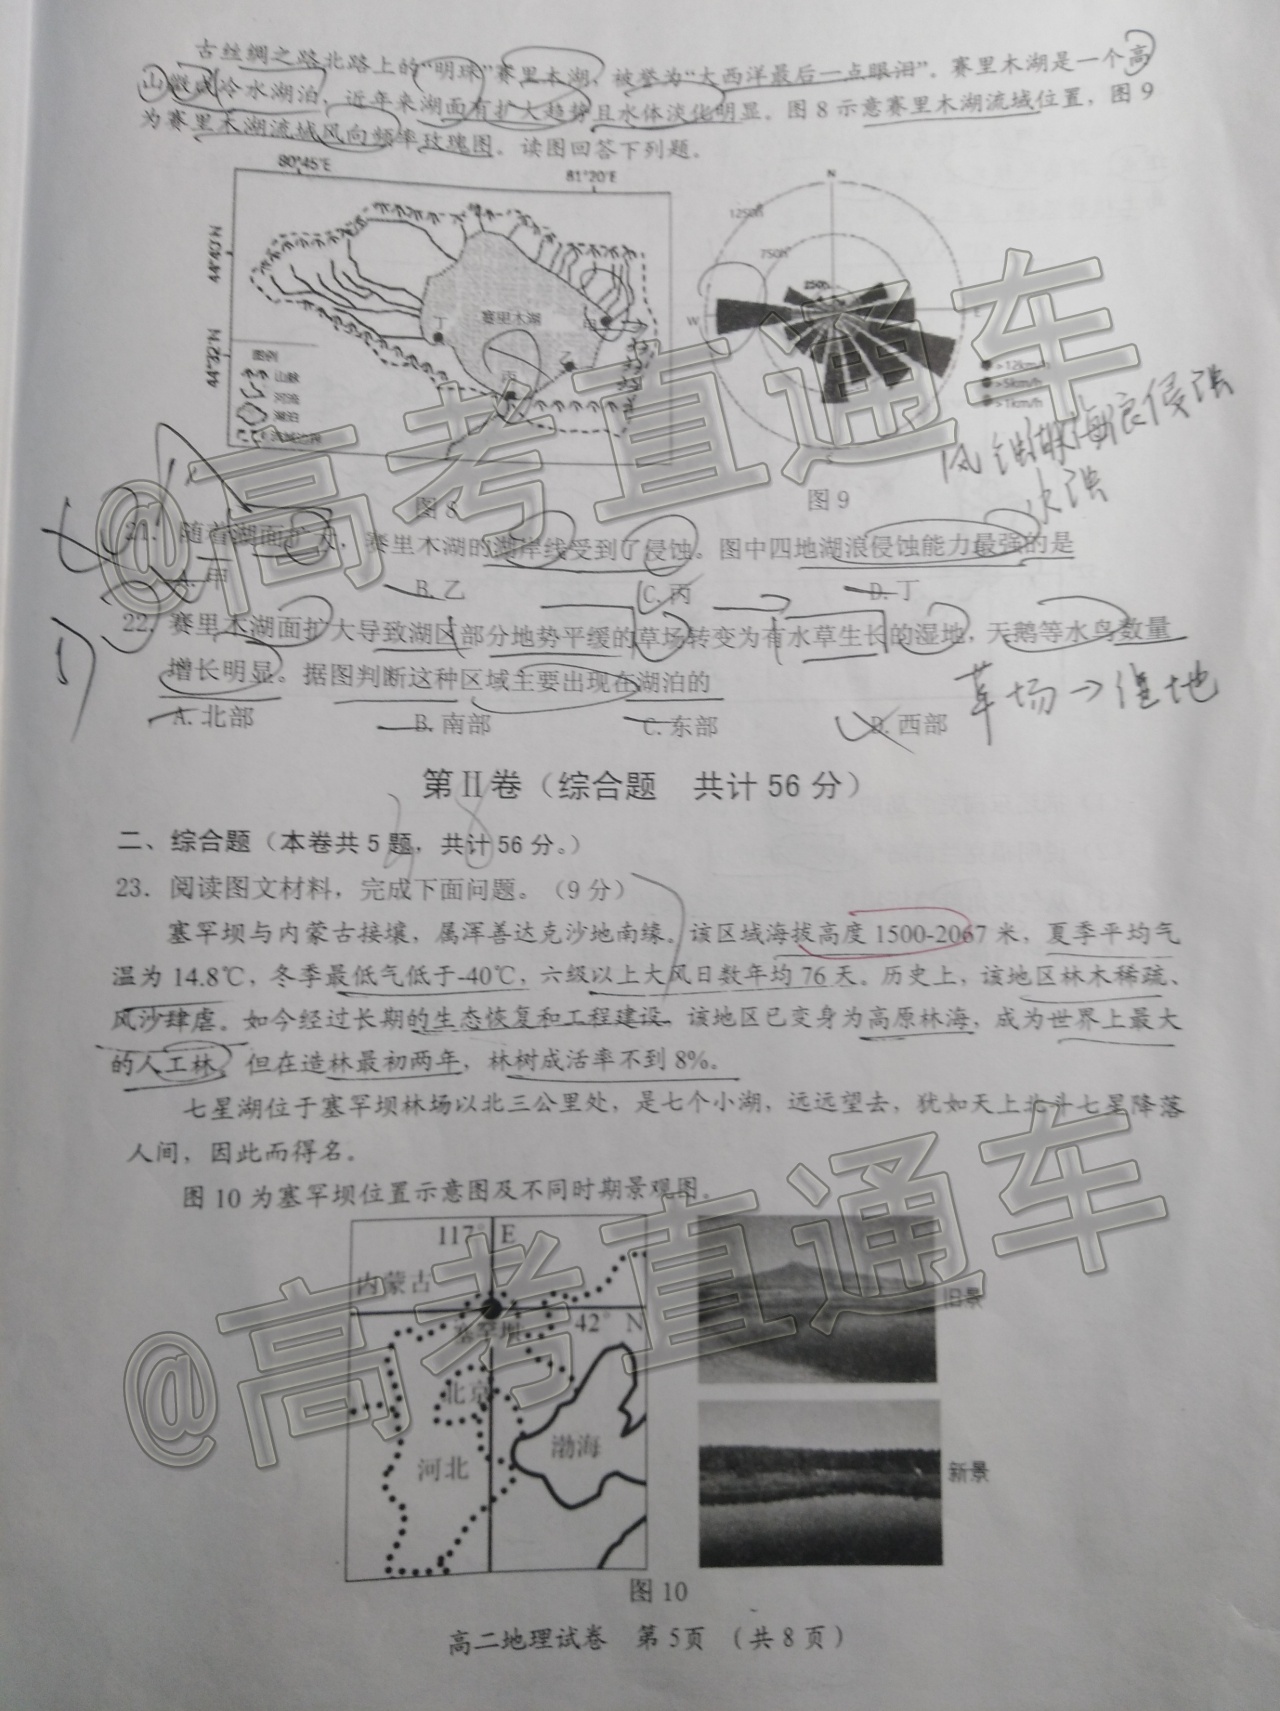 古丝绸之路北路上的“明珠”赛里木湖，被誉为“大西洋最后一点眼泪”。赛里木湖是一个高
山微咸冷水湖泊，近年来湖面有扩大趋势且水体淡化明显。图8示意赛里木湖流域位置，图9
为赛里木湖流域风向频率玫瑰图。读图回答下列题。
80°45′E
81°20′E
44°43′N
44°32′N
赛里木湖
甲
乙
丙
丁
图例
山脉
河流
湖泊
流域边界
图8
N
W
E
1250h
750h
250h
>12km/h
>5km/h
>1km/h
图9
21. 随着湖面扩大，赛里木湖的湖岸线受到了侵蚀。图中四地湖浪侵蚀能力最强的是
A. 甲 B. 乙 C. 丙 D. 丁
22. 赛里木湖面扩大导致湖区部分地势平缓的草场转变为有水草生长的湿地，天鹅等水鸟数量
增长明显。据图判断这种区域主要出现在湖泊的
草场→湿地
A. 北部 B. 南部 C. 东部 D. 西部
第Ⅱ卷（综合题 共计56分）
二、综合题（本卷共5题，共计56分。）
23. 阅读图文材料，完成下面问题。（9分）
塞罕坝与内蒙古接壤，属浑善达克沙地南缘。该区域海拔高度1500-2067米，夏季平均气
温为14.8℃，冬季最低气低于-40℃，六级以上大风日数年均76天。历史上，该地区林木稀疏、
风沙肆虐。如今经过长期的生态恢复和工程建设，该地区已变身为高原林海，成为世界上最大
的人工林。但在造林最初两年，林树成活率不到8%。
七星湖位于塞罕坝林场以北三公里处，是七个小湖，远远望去，犹如天上北斗七星降落
人间，因此而得名。
图10为塞罕坝位置示意图及不同时期景观图。
117° E
内蒙古
塞罕坝
42° N
北京
渤海
河北
旧景
新景
图10
高二地理试卷 第5页 （共8页）
@高考直通车
@高考直通车